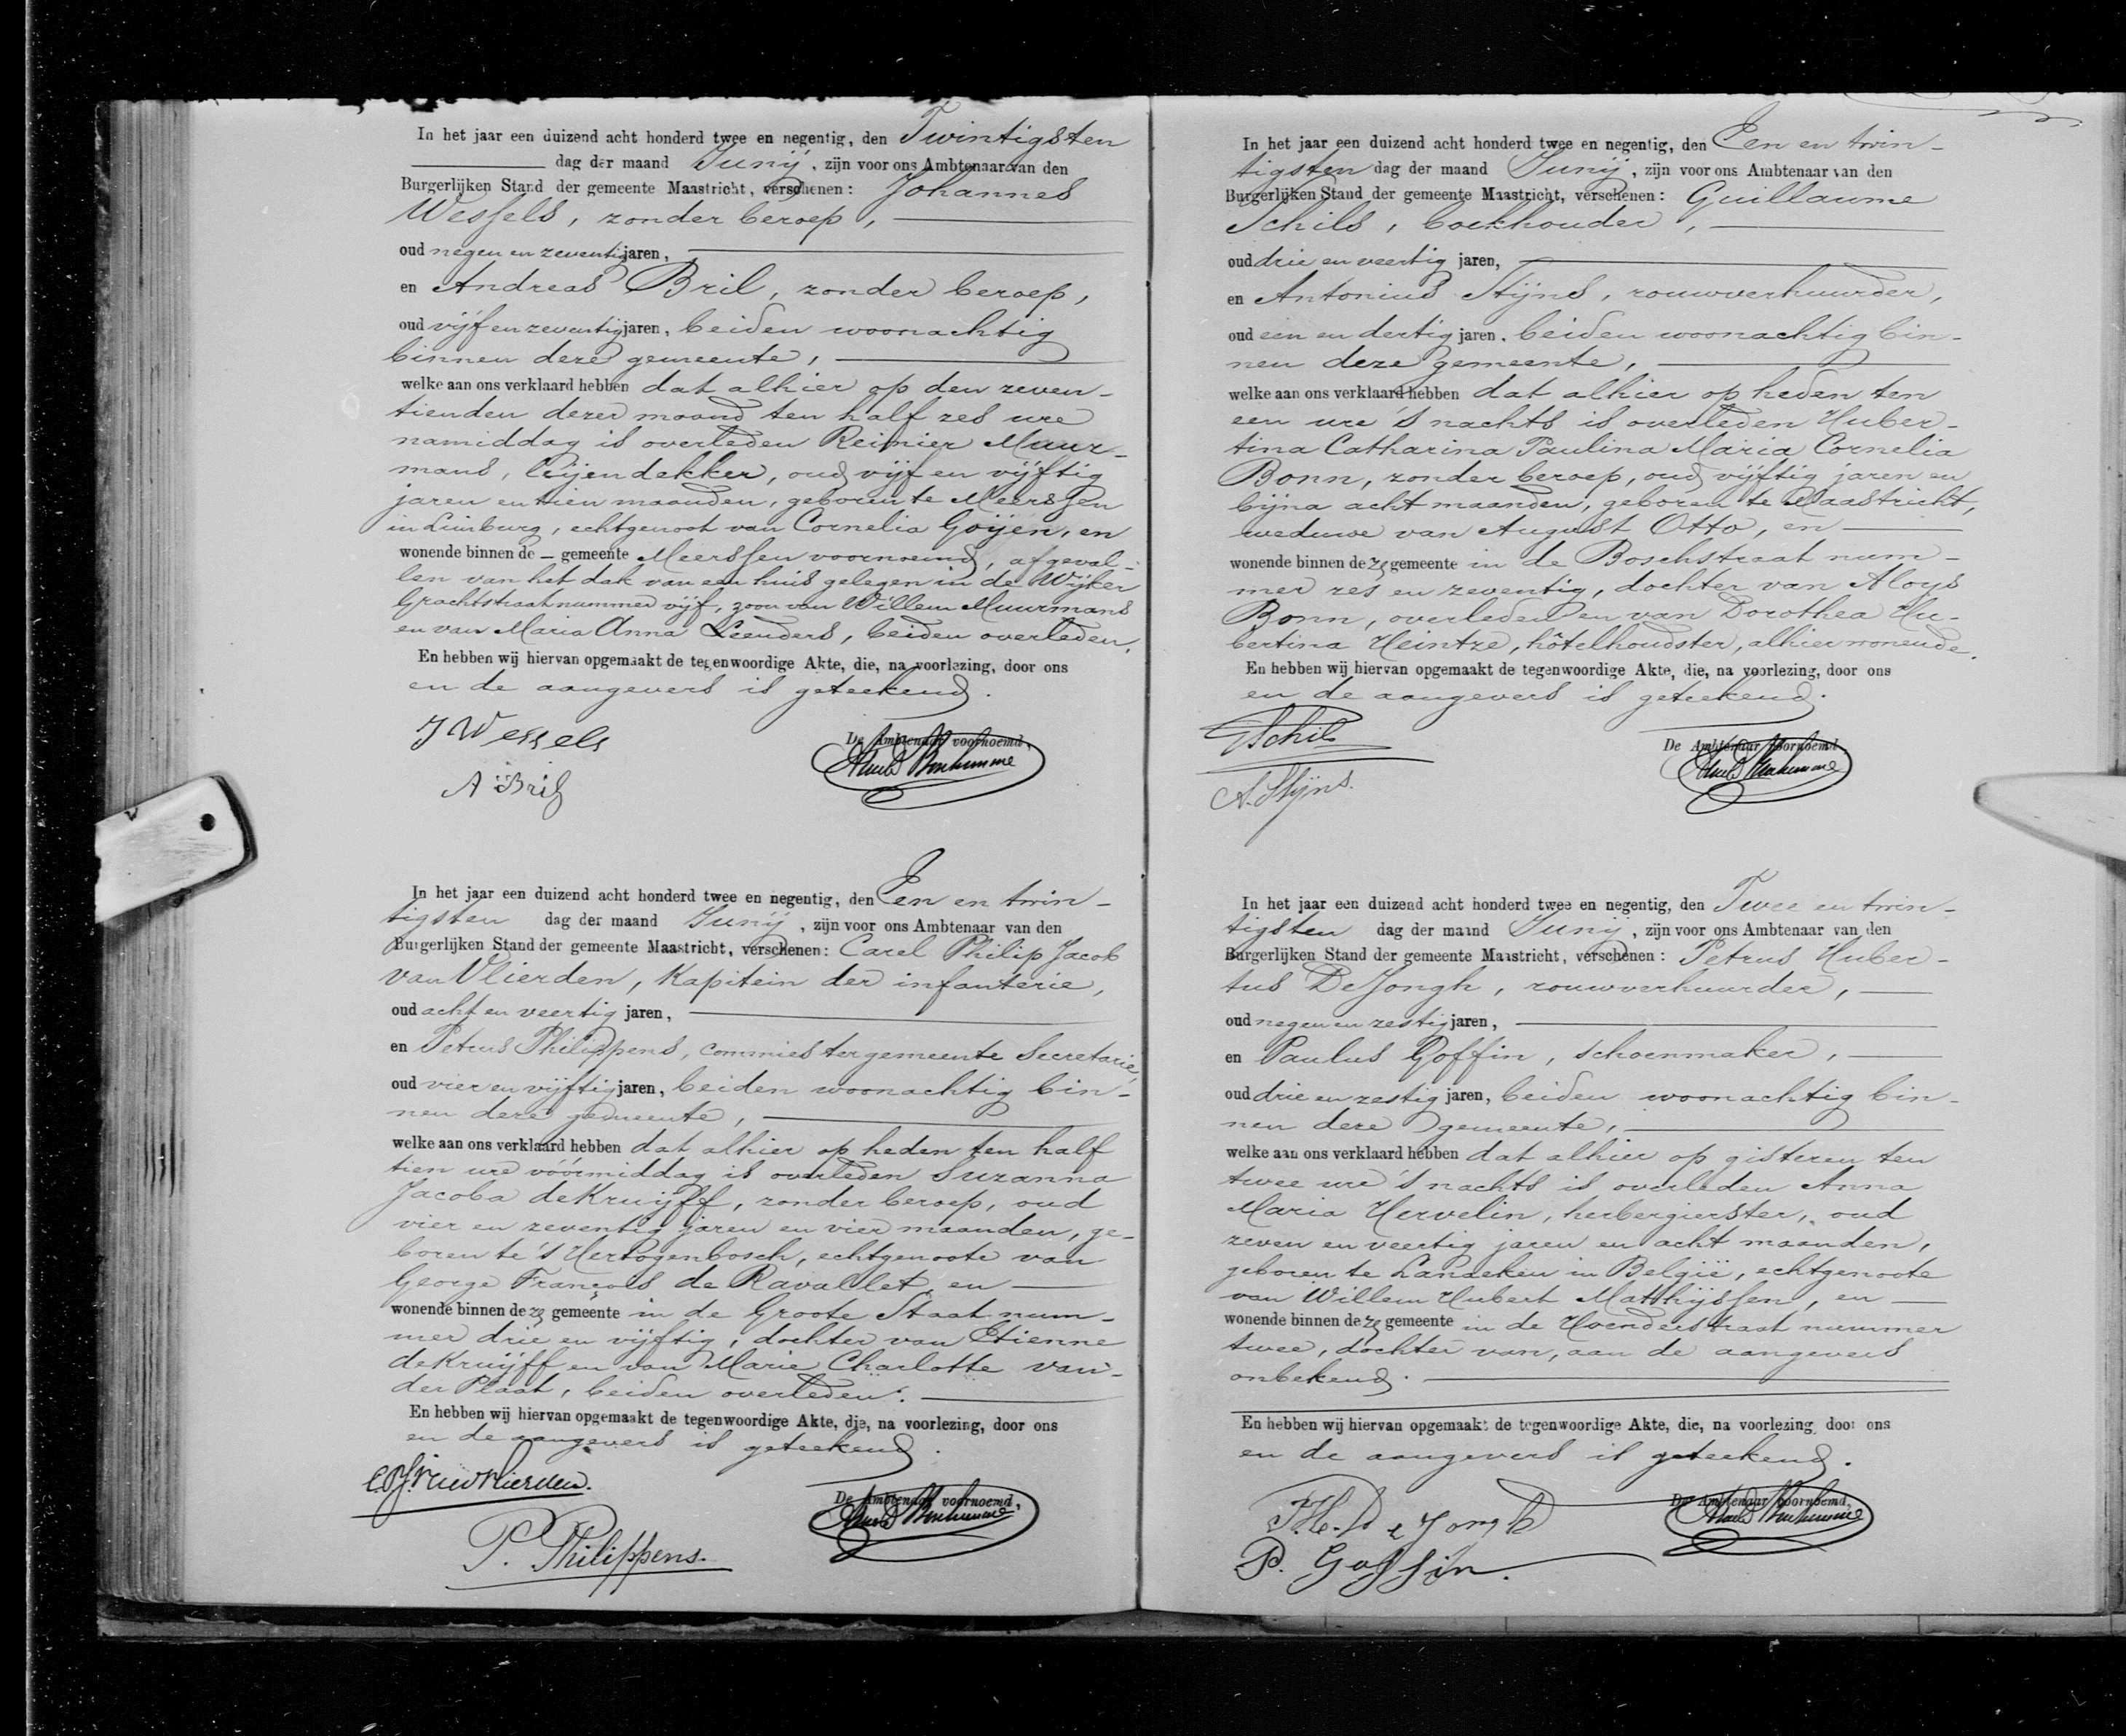 In het jaar een duizend acht honderd twee en negentig, den Twintigsten
dag der maand Junij, zijn voor ons Ambtenaar van den
Burgerlijken Stand der gemeente Maastricht, verschenen: Johannes
Wessels, zonder beroep,
oud negen en zeventig jaren,
en Andreas Bril, zonder beroep,
oud vijf en zeventig jaren, beiden woonachtig
binnen deze gemeente,
welke aan ons verklaard hebben dat alhier op den zeven-
tienden dezer maand ten half zes ure
namiddag is overleden Reinier Muur-
mans, leijendekker, oud vijf en vijftig
jaren en tien maanden, geboren te Meerssen
in Limburg, echtgenoot van Cornelia Goijen, en
wonende binnen de – gemeente Meerssen voornoemd, afgeval-
len van het dak van een huis gelegen in de Wijker
Grachtstraat nummer vijf, zoon van Willem Muurmans
en van Maria Anna Leenders, beiden overleden.
En hebben wij hiervan opgemaakt de tegenwoordige Akte, die, na voorlezing, door ons
en de aangevers is geteekend.
J Wessels
De Ambtenaar voornoemd,
A Bril
In het jaar een duizend acht honderd twee en negentig, den Een en twin-
tigsten dag der maand Junij, zijn voor ons Ambtenaar van den
Burgerlijken Stand der gemeente Maastricht, verschenen: Carel Philip Jacob
van Vlierden, Kapitein der infanterie,
oud acht en veertig jaren,
en Petrus Philippens, commies ter gemeente Secretarie,
oud vier en vijftig jaren, beiden woonachtig bin-
nen deze gemeente,
welke aan ons verklaard hebben dat alhier op heden ten half
tien ure vóórmiddag is overleden Suzanna
Jacoba de Kruijff, zonder beroep, oud
vier en zeventig jaren en vier maanden, ge-
boren te 's Hertogenbosch, echtgenoote van
George François de Ravallet, en
wonende binnen deze gemeente in de Groote Staat num-
mer drie en vijftig, dochter van Etienne
de Kruijff en van Marie Charlotte van
der Plaat, beiden overleden.
En hebben wij hiervan opgemaakt de tegenwoordige Akte, die, na voorlezing, door ons
en de aangevers is geteekend.
C.P.J. van Vlierden.
De Ambtenaar voornoemd,
P. Philippens.
In het jaar een duizend acht honderd twee en negentig, den Een en twin-
tigsten dag der maand Junij, zijn voor ons Ambtenaar van den
Burgerlijken Stand der gemeente Maastricht, verschenen: Guillaume
Schils, boekhouder,
oud drie en veertig jaren,
en Antonius Stijns, rouwverhuurder,
oud een en dertig jaren, beiden woonachtig bin-
nen deze gemeente,
welke aan ons verklaard hebben dat alhier op heden ten
een ure 's nachts is overleden Huber-
tina Catharina Paulina Maria Cornelia
Bonn, zonder beroep, oud vijftig jaren en
bijna acht maanden, geboren te Maastricht,
weduwe van August Otto, en
wonende binnen deze gemeente in de Boschstraat num-
mer zes en zeventig, dochter van Aloys
Bonn, overleden en van Dorothea Hu-
bertina Heintze, hôtelhoudster, alhier wonende.
En hebben wij hiervan opgemaakt de tegenwoordige Akte, die, na voorlezing, door ons
en de aangevers is geteekend.
GSchils
De Ambtenaar voornoemd,
A. Stijns.
In het jaar een duizend acht honderd twee en negentig, den Twee en twin-
tigsten dag der maand Junij, zijn voor ons Ambtenaar van den
Burgerlijken Stand der gemeente Maastricht, verschenen: Petrus Huber-
tus De Jongh, rouwverhuurder,
oud negen en zestig jaren,
en Paulus Goffin, schoenmaker,
oud drie en zestig jaren, beiden woonachtig bin-
nen deze gemeente,
welke aan ons verklaard hebben dat alhier op gisteren ten
twee ure 's nachts is overleden Anna
Maria Hervelin, herbergierster, oud
zeven en veertig jaren en acht maanden,
geboren te Lanaeken in België, echtgenoote
van Willem Hubert Matthijssen, en
wonende binnen deze gemeente in de Hoenderstraat nummer
twee, dochter van, aan de aangevers
onbekend.
En hebben wij hiervan opgemaakt de tegenwoordige Akte, die, na voorlezing, door ons
en de aangevers is geteekend.
P.H. De Jongh
De Ambtenaar voornoemd,
P. Goffin.